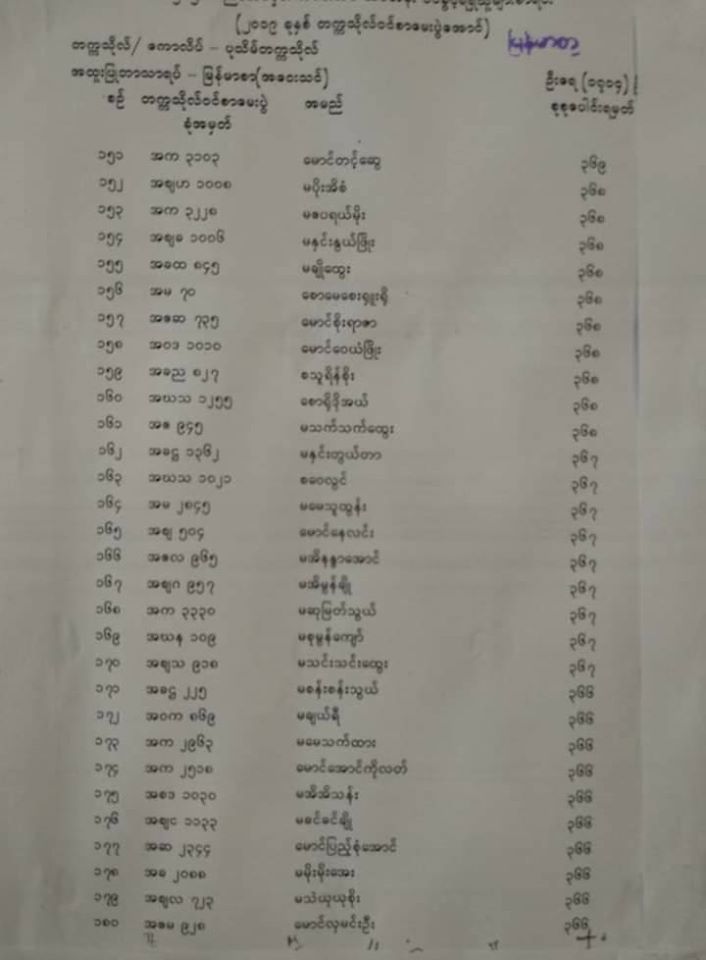 (၂၀၁၉ ခုနှစ် တက္ကသိုလ်ဝင်စာမေးပွဲအောင်)
မြန်မာစာ
တက္ကသိုလ်/ ကောလိပ် – ပုသိမ်တက္ကသိုလ်
အထူးပြုဘာသာရပ် – မြန်မာစာ(အဝေးသင်)
ဦးရေ (၁၃၁၄)
စဉ် တက္ကသိုလ်ဝင်စာမေးပွဲ အမည် စုစုပေါင်းရမှတ်
ခုံအမှတ်
၁၅၁ အက ၃၁၀၃ မောင်တင့်ဆွေ ၃၆၉
၁၅၂ အဈဟ ၁၀၀၈ မပိုးအိစံ ၃၆၈
၁၅၃ အက ၃၂၂၈ မဇပရယ်မိုး ၃၆၈
၁၅၄ အဈခ ၁၀၀၆ မနှင်းနွယ်ဖြိုး ၃၆၈
၁၅၅ အခထ ၈၄၅ မချိုထွေး ၃၆၈
၁၅၆ အမ ၇၀ စောမေစေးရှူးရှို ၃၆၈
၁၅၇ အဇဆ ၇၃၅ မောင်စိုးရာဇာ ၃၆၈
၁၅၈ အဝဒ ၁၀၁၀ မောင်ဝေယံဖြိုး ၃၆၈
၁၅၉ အခည ၈၂၇ စသူရိန်စိုး ၃၆၈
၁၆၀ အဃသ ၁၂၅၅ စောရှိဒိုအယ် ၃၆၈
၁၆၁ အစ ၉၄၅ မသက်သက်ထွေး ၃၆၈
၁၆၂ အခဋ္ဌ ၁၃၆၂ မနှင်းတွယ်တာ ၃၆၇
၁၆၃ အဃသ ၁၀၂၁ စဝေလွင် ၃၆၇
၁၆၄ အမ ၂၈၄၅ မမေသူထွန်း ၃၆၇
၁၆၅ အဈ ၅၀၄ မောင်နေလင်း ၃၆၇
၁၆၆ အဇလ ၉၆၅ မအိန္ဒြာအောင် ၃၆၇
၁၆၇ အဈဂ ၉၅၇ မအိမွန်ချို ၃၆၇
၁၆၈ အက ၃၃၃၀ မဆုမြတ်သွယ် ၃၆၇
၁၆၉ အဃန ၁၀၉ မစုမွန်ကျော် ၃၆၇
၁၇၀ အဈသ ၉၁၈ မသင်းသင်းထွေး ၃၆၇
၁၇၁ အခဋ္ဌ ၂၂၅ မစန်းစန်းသွယ် ၃၆၆
၁၇၂ အဝက ၈၆၉ မချယ်ရီ ၃၆၆
၁၇၃ အက ၂၉၆၃ မမေသက်ထား ၃၆၆
၁၇၄ အက ၂၅၁၈ မောင်အောင်ကိုလတ် ၃၆၆
၁၇၅ အစဒ ၁၀၃၀ မအိအိသန်း ၃၆၆
၁၇၆ အဈင ၁၁၃၃ မခင်ခင်ချို ၃၆၆
၁၇၇ အဆ ၂၃၄၄ မောင်ပြည့်စုံအောင် ၃၆၆
၁၇၈ အခ ၂၀၈၈ မမိုးမိုးအေး ၃၆၆
၁၇၉ အဈလ ၇၂၃ မသဲယုယုစိုး ၃၆၆
၁၈၀ အဇမ ၉၂၈ မောင်လှမင်းဦး ၃၆၆